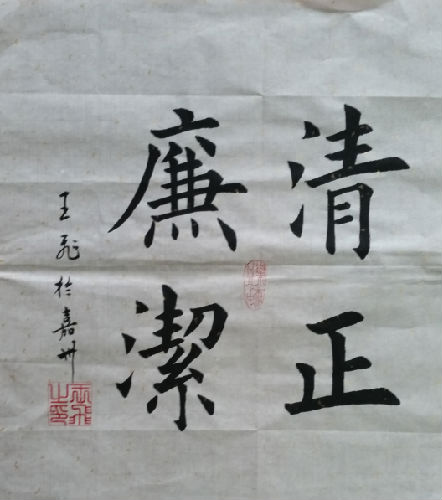 清正
廉潔
王飛於嘉州